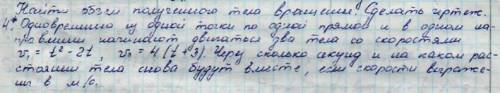 Найти объём полученного тела вращения. Сделать чертёж.
4. Одновременно из одной точки по одной прямой и в одном на-
правлении начинают двигаться два тела со скоростями
v₁ = t² - 2t, v₂ = 4(t + 3). Через сколько секунд и на каком рас-
стоянии тела снова будут вместе, если скорости выраже-
ны в м/с.